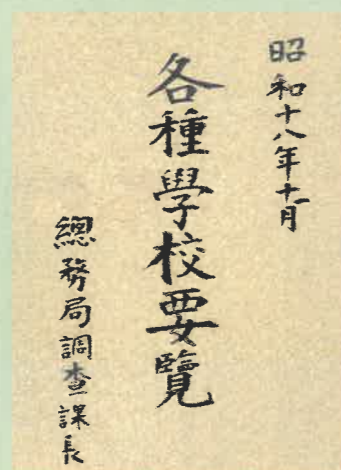 昭和十八年十一月
各種學校要覽
總務局調査課長